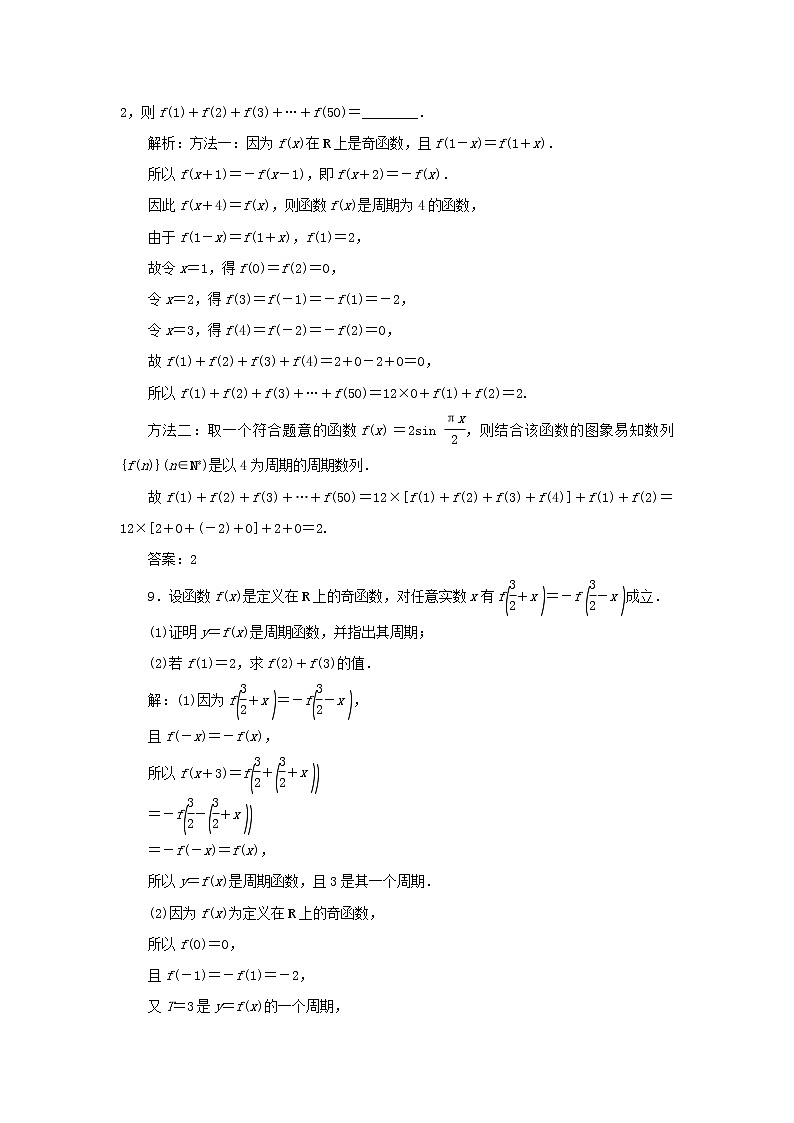 2,则 f(1)+f(2)+f(3)+…+f(50)=________.
解析:方法一:因为 f(x)在 R 上是奇函数,且 f(1-x)=f(1+x).
所以 f(x+1)=-f(x-1),即 f(x+2)=-f(x).
因此 f(x+4)=f(x),则函数 f(x)是周期为 4 的函数,
由于 f(1-x)=f(1+x),f(1)=2,
故令 x=1,得 f(0)=f(2)=0,
令 x=2,得 f(3)=f(-1)=-f(1)=-2,
令 x=3,得 f(4)=f(-2)=-f(2)=0,
故 f(1)+f(2)+f(3)+f(4)=2+0-2+0=0,
所以 f(1)+f(2)+f(3)+…+f(50)=12×0+f(1)+f(2)=2.
方法二:取一个符合题意的函数 f(x)=2sin πx/2,则结合该函数的图象易知数列
{f(n)}(n∈N*)是以 4 为周期的周期数列.
故 f(1)+f(2)+f(3)+…+f(50)=12×[f(1)+f(2)+f(3)+f(4)]+f(1)+f(2)=
12×[2+0+(-2)+0]+2+0=2.
答案:2
9.设函数 f(x)是定义在 R 上的奇函数,对任意实数 x 有 f(3/2+x)=-f(3/2-x)成立.
(1)证明 y=f(x)是周期函数,并指出其周期;
(2)若 f(1)=2,求 f(2)+f(3)的值.
解:(1)因为 f(3/2+x)=-f(3/2-x),
且 f(-x)=-f(x),
所以 f(x+3)=f(3/2+(3/2+x))
=-f(3/2-(3/2+x))
=-f(-x)=f(x),
所以 y=f(x)是周期函数,且 3 是其一个周期.
(2)因为 f(x)为定义在 R 上的奇函数,
所以 f(0)=0,
且 f(-1)=-f(1)=-2,
又 T=3 是 y=f(x)的一个周期,